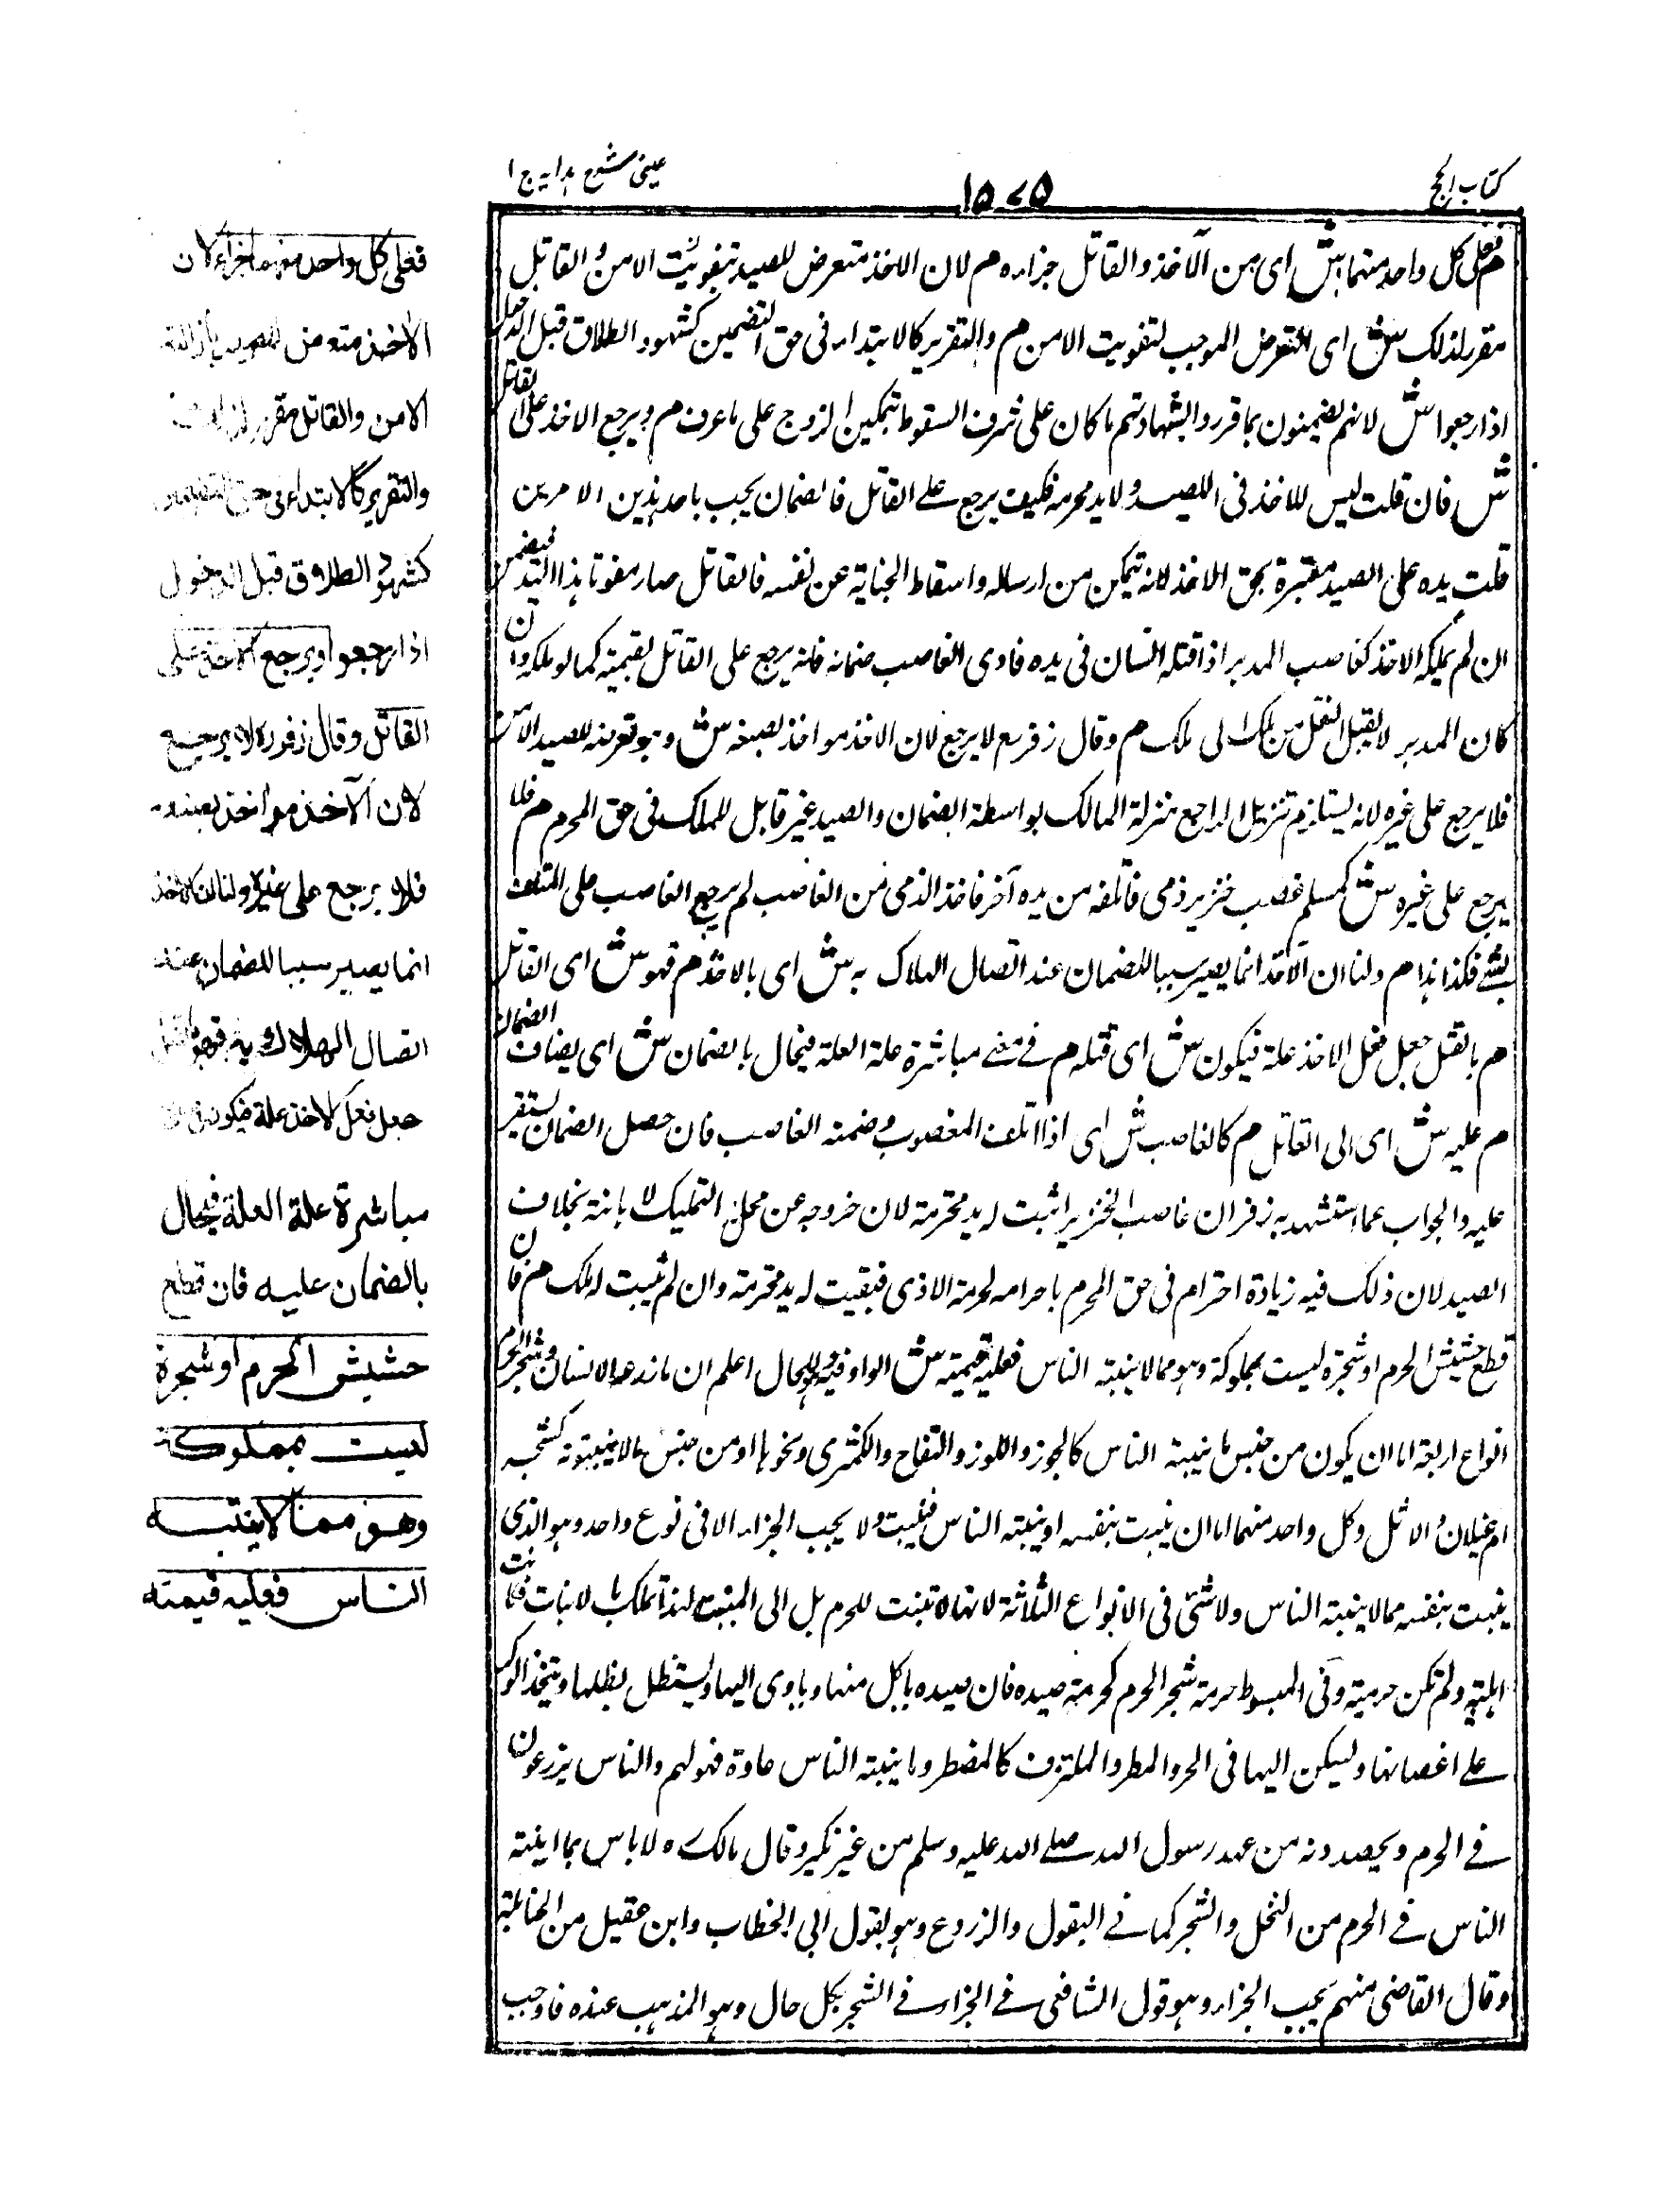 كتاب الحج
١٥٧٥
عينى شرح هدايه ج ١
م فعلى كل واحد منهما ش اى من الآخذ والقاتل جزاءه م لان الاخذ متعرض للصيد بتفويت الامن والقاتل
مقرر لذلك ش اى للتعرض الموجب لتفويت الامن م والتقرير كالابتداء فى حق التضمين كشهود الطلاق قبل الدخول
اذا رجعوا ش لانهم يضمنون بما قرروا بشهادتهم ما كان على شرف السقوط بتمكين الزوج على ما عرف م ويرجع الاخذ على القاتل
ش فان قلت ليس للاخذ فى الصيد ولا يد محرمة فكيف يرجع على القاتل فالضمان يجب باحد هذين الامرين
قلت يده على الصيد معتبرة بحق الاخذ لانه يتمكن من ارساله واسقاط الجناية عن نفسه فالقاتل صار مفوتا هذا اليد فيضمن
ان لم يملكه الاخذ كغاصب المدبر اذا قتله انسان فى يده فادى الغاصب ضمانه فانه يرجع على القاتل بقيمته كما لو ملك وان
كان المدبر لا يقبل النقل من ملك الى ملك م وقال زفر رح لا يرجع لان الاخذ مواخذ بصنعه ش وهو تعرضه للصيد الآمن
فلا يرجع على غيره لانه يستلزم تنزيل الراجع منزلة المالك بواسطة الضمان والصيد غير قابل للملك فى حق المحرم م فلا
يرجع على غيره ش كمسلم غصب خنزير ذمى فاتلفه من يده آخر فاخذ الذمى من الغاصب لم يرجع الغاصب على المتلف
بشئ فكذا هذا م ولنا ان الآخذ انما يصير سببا للضمان عند اتصال الهلاك به ش اى بالاخذ م فهو ش اى القاتل
م بالقتل جعل فعل الاخذ علة فيكون ش اى قتله م فى معنى مباشرة علة العلة فيحال بالضمان ش اى يضاف الضمان
م عليه ش اى الى القاتل م كالغاصب ش اى اذا اتلف المغصوب وضمنه الغاصب فان حصل الضمان يستقر
عليه والجواب عما استشهد به زفر ان غاصب الخنزير اثبت له يد محترمة لان خروجه عن محل التمليك لا هانته بخلاف
الصيد لان ذلك فيه زيادة احترام فى حق المحرم باحرامه لحرمة الاذى فبقيت له يد محترمة وان لم يثبت له ملك م فان
قطع حشيش الحرم او شجرة ليست بمملوكة وهو مما لا ينبته الناس فعليه قيمته ش الواو فيه للحال اعلم ان ما زرعه الانسان وشجر الحرم
انواع اربعة اما ان يكون من جنس ما ينبته الناس كالجوز واللوز والتفاح والكمثرى ونحوها او من جنس ما لا ينبتونه كشجر
ام غيلان والاثل وكل واحد منهما اما ان ينبت بنفسه او ينبته الناس فينبت ولا يجب الجزاء الا فى نوع واحد وهو الذى
ينبت بنفسه مما لا ينبته الناس ولا شئ فى الانواع الثلاثة لانها لا تنبت للحرم بل الى المنبت لهذا تملك بالانبات فكانت
اهلية ولم تكن حرمية وفى المبسوط حرمة شجر الحرم كحرمة صيده فان صيده ياكل منها وياوى اليها ويستظل بظلها ويتخذ الوكر
على اغصانها ويسكن اليها فى الحر والمطر والملتزف كالمضطر وما ينبته الناس عادة فهو لهم والناس يزرعون
فى الحرم ويحصدونه من عهد رسول الله صلى الله عليه وسلم من غير نكير وقال مالك ره لا باس بما اينبته
الناس فى الحرم من النخل والشجر كما فى البقول والزروع وهو بقول ابى الخطاب وابن عقيل من الحنابلة
وقال القاضى منهم يجب الجزاء وهو قول الشافعى فى الجزاء فى الشجر بكل حال وهو المذهب عنده فاوجب
فعلى كل واحد منهما جزاء لان
الآخذ متعرض للصيد بازالة
الامن والقاتل مقرر لذلك
والتقرير كالابتداء فى حق التضمين
كشهود الطلاق قبل الدخول
اذا رجعوا ويرجع الآخذ على
القاتل وقال زفر ره لا يرجع
لان الآخذ مواخذ بصنعه
فلا يرجع على غيره ولنا ان الاخذ
انما يصير سببا للضمان عند
اتصال الهلاك به فهو بالقتل
جعل فعل الاخذ علة فيكون
مباشرة علة العلة فيحال
بالضمان عليه فان قطع
حشيش الحرم او شجرة
ليست بمملوكة
وهو مما لا ينبته
الناس فعليه قيمته